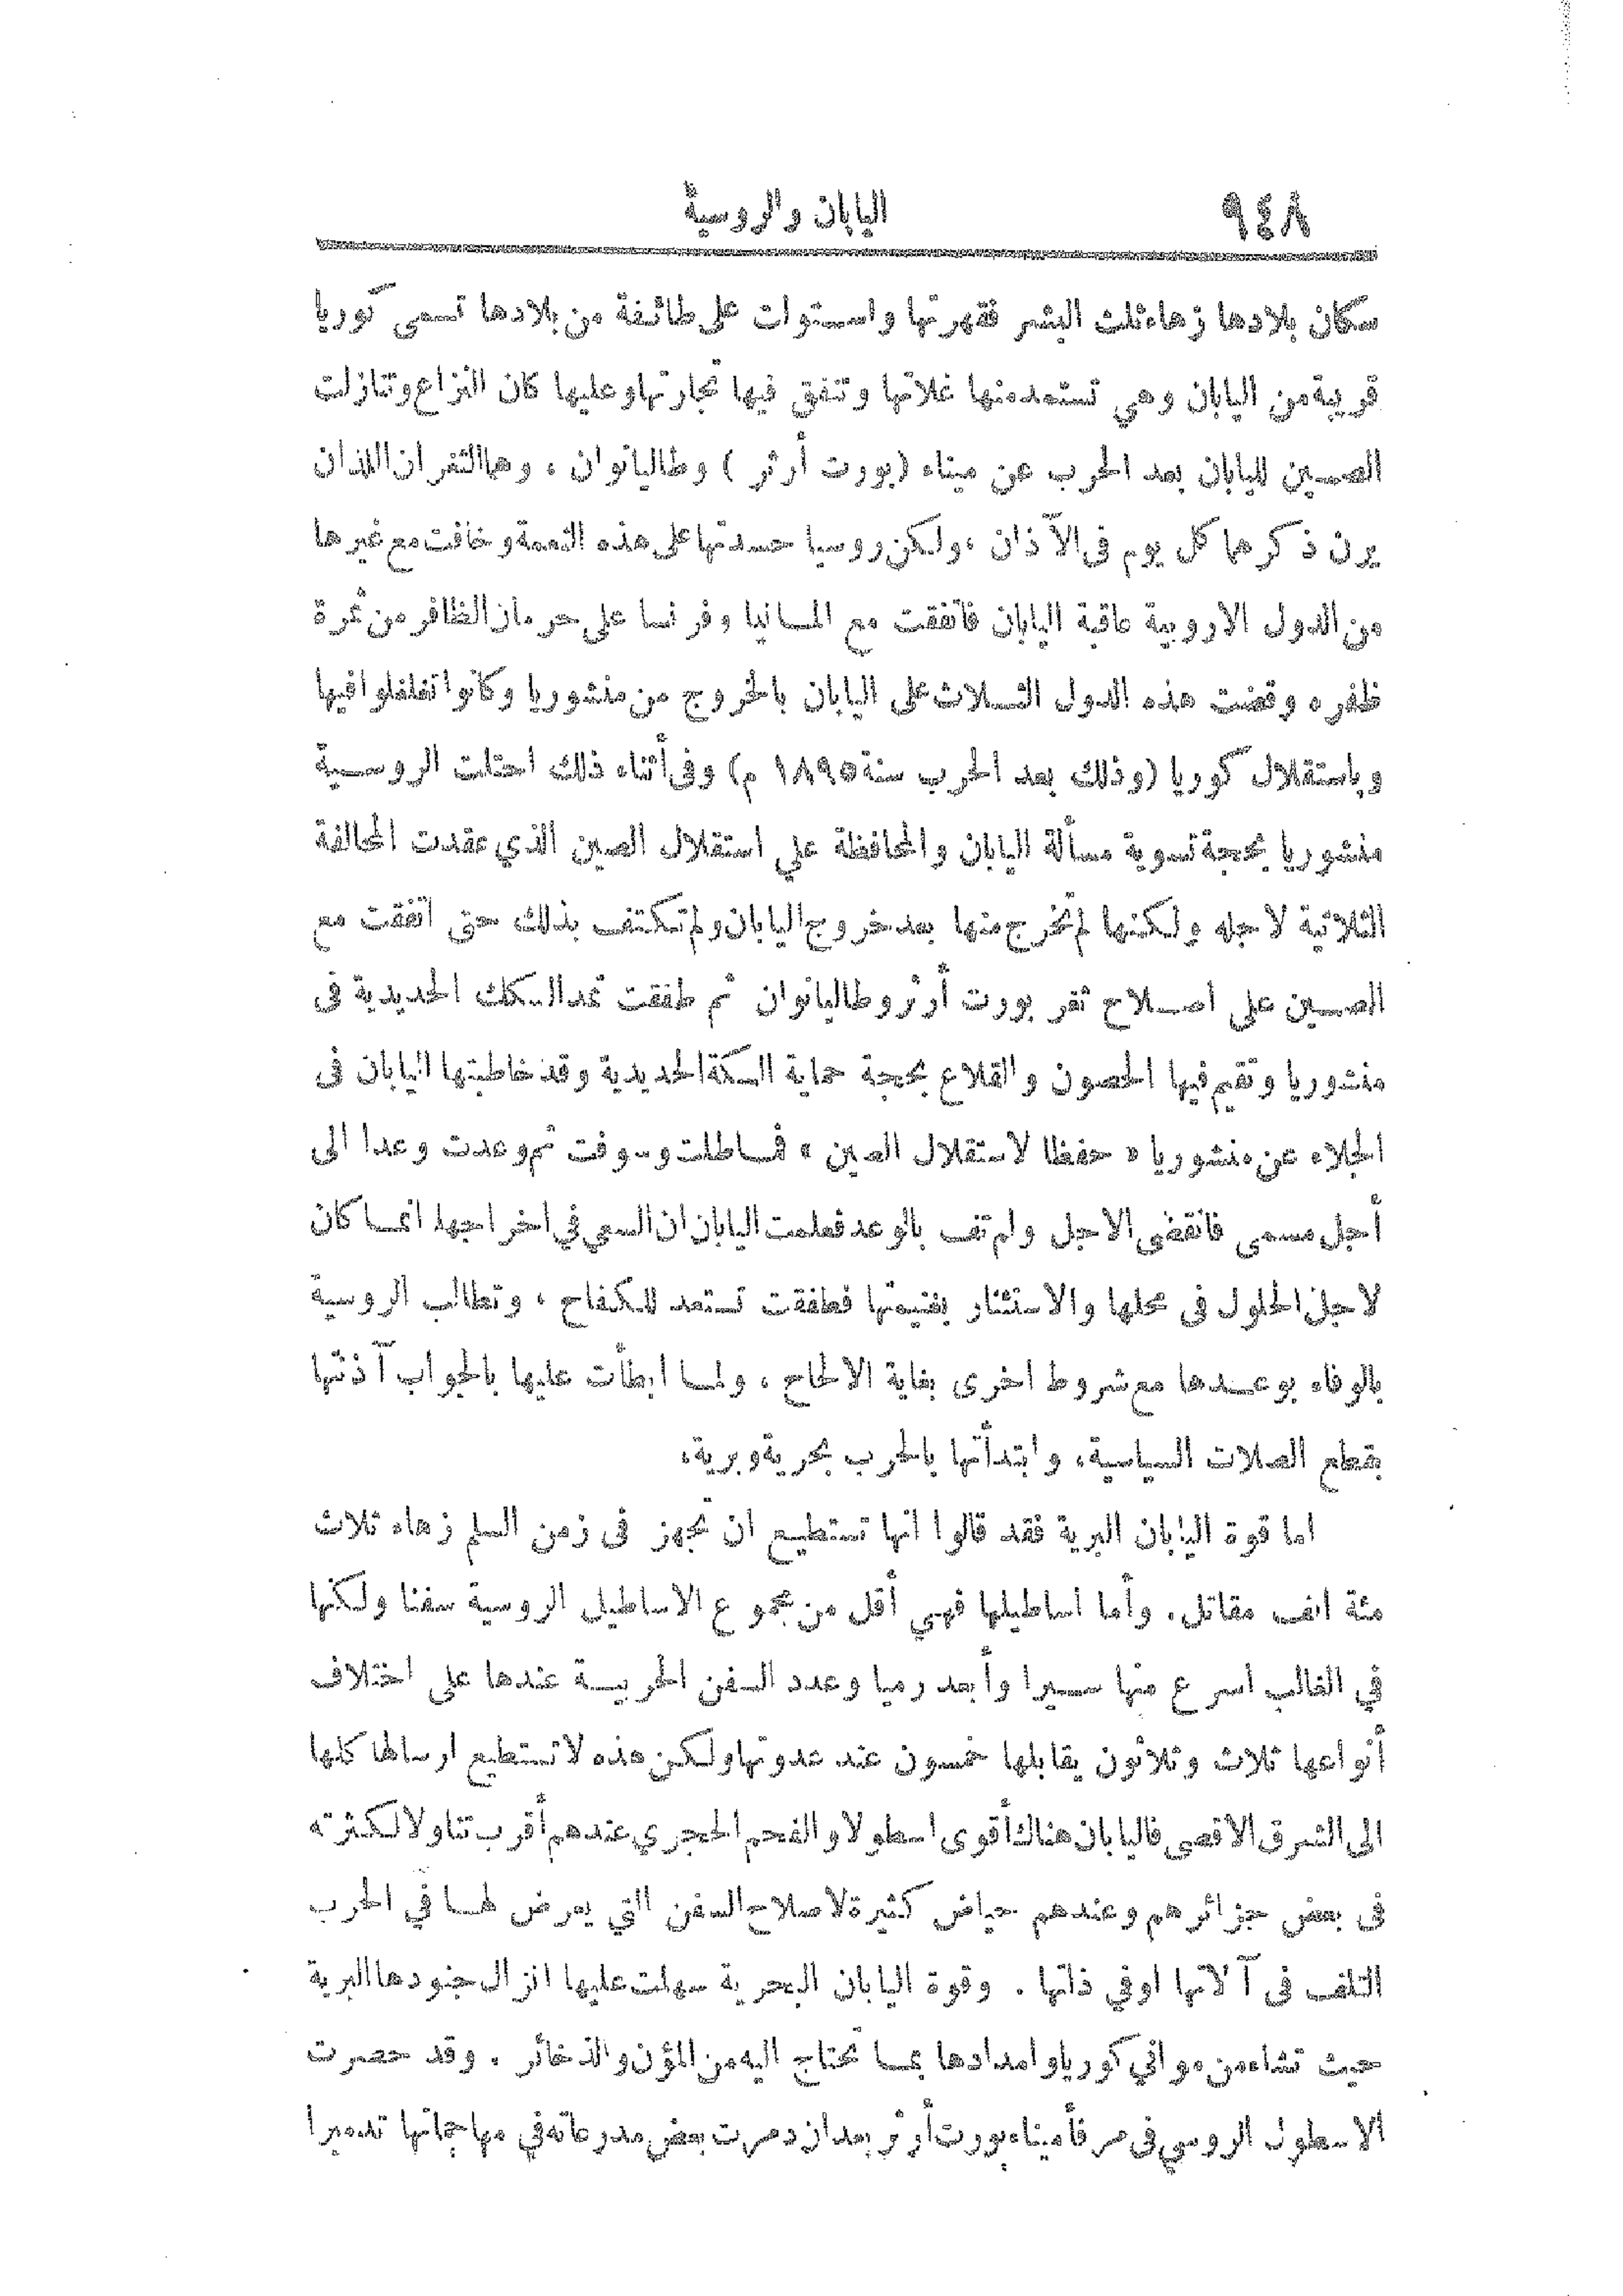 ٩٤٨ اليابان والروسية
سكان بلادها زهاء ثلث البشر فقهرتها واستوات على طائفة من بلادها تسمى كوريا
قريبة من اليابان وهي تستمد منها غلاتها وتنفق فيها تجارتها وعليها كان النزاع وتنازلت
الصين لليابان بعد الحرب عن ميناء (بورت أرثر) وطاليانوان ، وهما الثغران اللذان
يرن ذكرهما كل يوم فى الآذان ، ولكن روسيا حسدتها على هذه النعمة وخافت مع غيرها
من الدول الاروبية عاقبة اليابان فاتفقت مع المانيا وفرنسا على حرمان الظافر من ثمرة
ظفره وقضت هذه الدول الثلاث على اليابان بالخروج من منشوريا وكانوا تغلغلوا فيها
وباستقلال كوريا (وذلك بعد الحرب سنة ١٨٩٥ م) وفى أثناء ذلك احتلت الروسية
منشوريا بحجة تسوية مسألة اليابان والمحافظة على استقلال الصين الذي عقدت المحالفة
الثلاثية لاجله ولكنها لم تخرج منها بعد خروج اليابان ولم تكتف بذلك حتى اتفقت مع
الصين على اصلاح ثغر بورت أرثر وطاليانوان ثم طفقت تمد السكك الحديدية فى
منشوريا وتقيم فيها الحصون والقلاع بحجة حماية السكة الحديدية وقد خاطبتها اليابان فى
الجلاء عن منشوريا « حفظا لاستقلال الصين » فماطلت وسوفت ثم وعدت وعدا الى
أجل مسمى فانقضى الاجل ولم تف بالوعد فعلمت اليابان ان السعي في اخراجها انما كان
لاجل الحلول فى محلها والاستئثار بغنيمتها فطفقت تستعد للكفاح ، وتطالب الروسية
بالوفاء بوعدها مع شروط اخرى بغاية الالحاح ، ولما ابطأت عليها بالجواب آذنتها
بقطع الصلات السياسية، وابتدأتها بالحرب بحرية وبرية،
اما قوة اليابان البرية فقد قالوا انها تستطيع ان تجهز فى زمن السلم زهاء ثلاث
مئة الف مقاتل. وأما اساطيلها فهي أقل من مجموع الاساطيل الروسية سفنا ولكنها
في الغالب اسرع منها سيرا وأبعد رميا وعدد السفن الحربية عندها على اختلاف
أنواعها ثلاث وثلاثون يقابلها خمسون عند عدوتها ولكن هذه لا تستطيع ارسالها كلها
الى الشرق الاقصى فاليابان هناك أقوى اسطولا والفحم الحجري عندهم أقرب تناولا لكثرته
فى بعض جزائرهم وعندهم حياض كثيرة لاصلاح السفن التي يعرض لها في الحرب
التلف فى آلاتها اوفي ذاتها . وقوة اليابان البحرية سهلت عليها انزال جنودها البرية
حيث تشاء من مواني كوريا وامدادها بما تحتاج اليه من المؤن والذخائر . وقد حصرت
الاسطول الروسي فى مرفأ ميناء بورت أرثر بعد ان دمرت بعض مدرعاته في مهاجماتها تدميرا